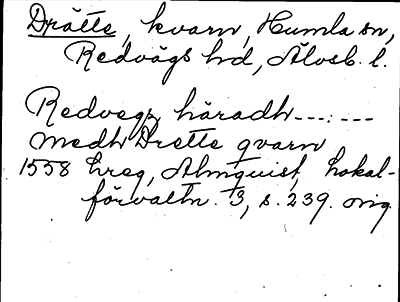 Drätte, kvarn, Humla sn,
Redvägs hd, Älvsb. l.
Redvegz häradh---:---
medh Drette qvarn
1558 hreg, Almquist, Lokal-
förvaltn. 3, s. 239. orig.